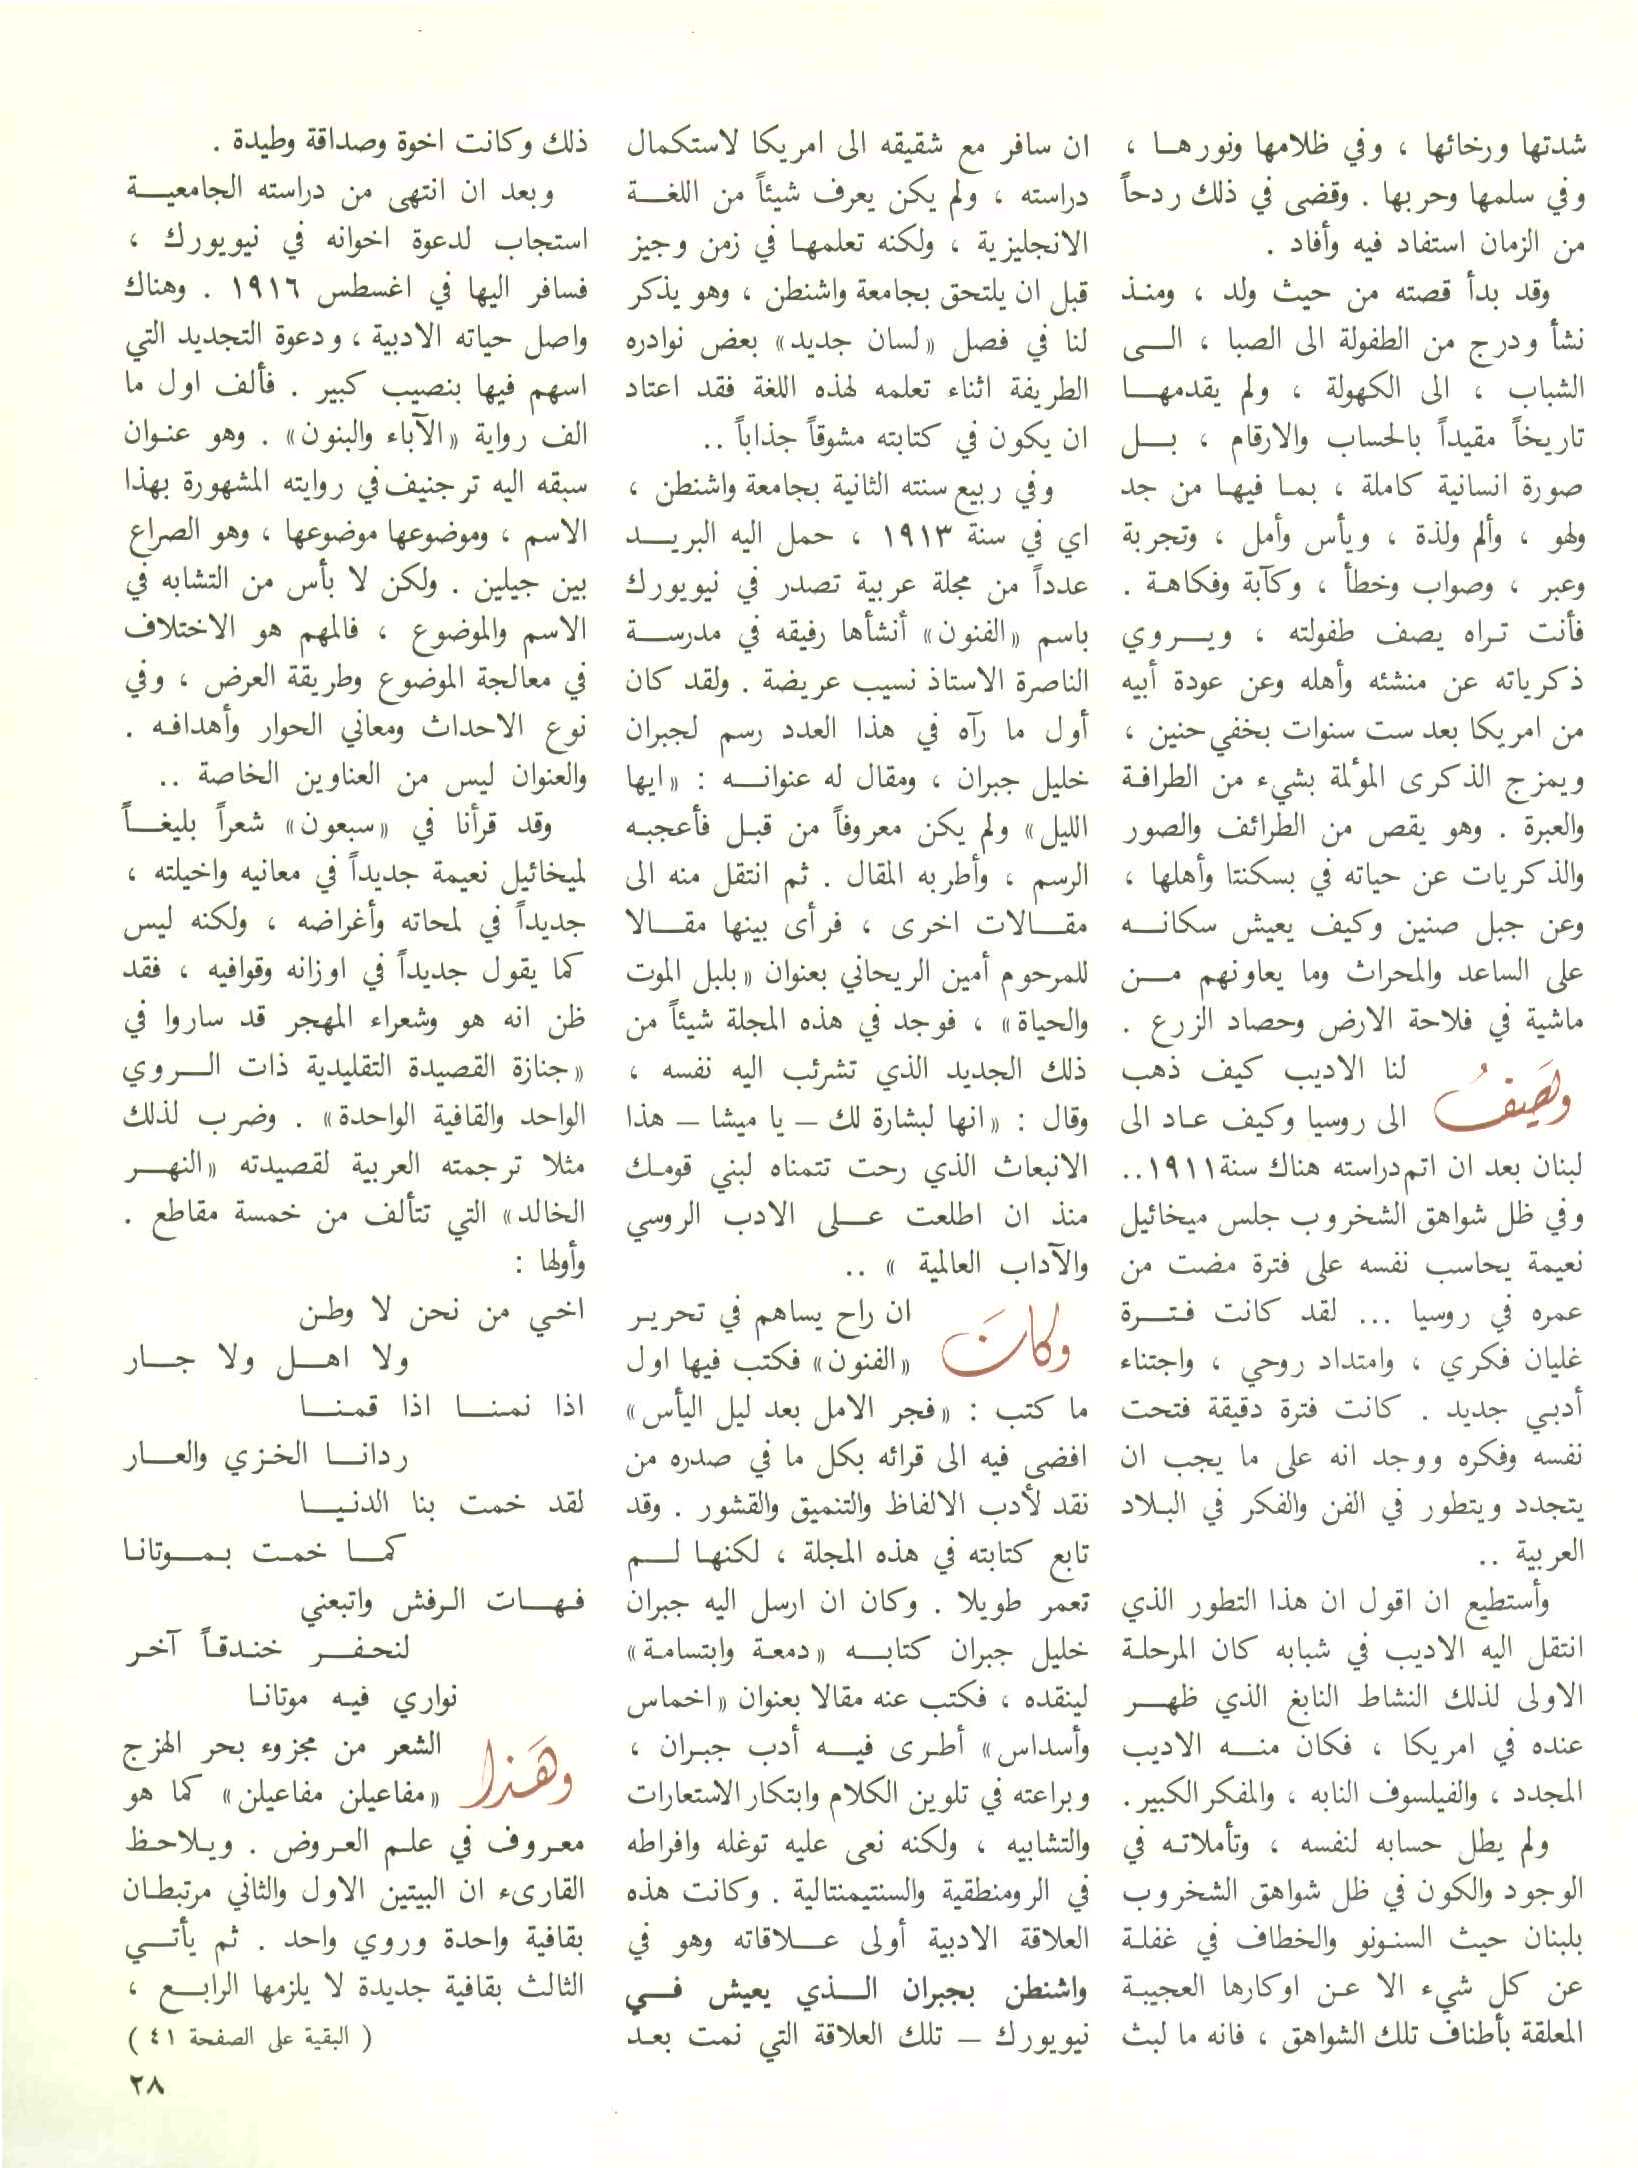 شدتها ورخائها ، وفي ظلامها ونورها ،
وفي سلمها وحربها . وقضى في ذلك ردحاً
من الزمان استفاد فيه وأفاد .
وقد بدأ قصته من حيث ولد ، ومنذ
نشأ ودرج من الطفولة الى الصبا ، الى
الشباب ، الى الكهولة ، ولم يقدمها
تاريخاً مقيداً بالحساب والارقام ، بل
صورة انسانية كاملة ، بما فيها من جد
ولهو ، وألم ولذة ، ويأس وأمل ، وتجربة
وعبر ، وصواب وخطأ ، وكآبة وفكاهة .
فأنت تراه يصف طفولته ، ويروي
ذكرياته عن منشئه وأهله وعن عودة أبيه
من امريكا بعد ست سنوات بخفي حنين ،
ويمزج الذكرى المؤلمة بشيء من الطرافة
والعبرة . وهو يقص من الطرائف والصور
والذكريات عن حياته في بسكنتا وأهلها ،
وعن جبل صنين وكيف يعيش سكانه
على الساعد والمحراث وما يعاونهم من
ماشية في فلاحة الارض وحصاد الزرع .
وَيصِفُ لنا الاديب كيف ذهب
الى روسيا وكيف عاد الى
لبنان بعد ان اتم دراسته هناك سنة ١٩١١..
وفي ظل شواهق الشخروب جلس ميخائيل
نعيمة يحاسب نفسه على فترة مضت من
عمره في روسيا ... لقد كانت فترة
غليان فكري ، وامتداد روحي ، واجتناء
أدبي جديد . كانت فترة دقيقة فتحت
نفسه وفكره ووجد انه على ما يجب ان
يتجدد ويتطور في الفن والفكر في البلاد
العربية ..
وأستطيع ان اقول ان هذا التطور الذي
انتقل اليه الاديب في شبابه كان المرحلة
الاولى لذلك النشاط النابغ الذي ظهر
عنده في امريكا ، فكان منه الاديب
المجدد ، والفيلسوف النابه ، والمفكر الكبير.
ولم يطل حسابه لنفسه ، وتأملاته في
الوجود والكون في ظل شواهق الشخروب
بلبنان حيث السنونو والخطاف في غفلة
عن كل شيء الا عن اوكارها العجيبة
المعلقة بأطناف تلك الشواهق ، فانه ما لبث
ان سافر مع شقيقه الى امريكا لاستكمال
دراسته ، ولم يكن يعرف شيئاً من اللغة
الانجليزية ، ولكنه تعلمها في زمن وجيز
قبل ان يلتحق بجامعة واشنطن ، وهو يذكر
لنا في فصل «لسان جديد» بعض نوادره
الطريفة اثناء تعلمه لهذه اللغة فقد اعتاد
ان يكون في كتابته مشوقاً جذاباً ..
وفي ربيع سنته الثانية بجامعة واشنطن ،
اي في سنة ١٩١٣ ، حمل اليه البريد
عدداً من مجلة عربية تصدر في نيويورك
باسم «الفنون» أنشأها رفيقه في مدرسة
الناصرة الاستاذ نسيب عريضة . ولقد كان
أول ما رآه في هذا العدد رسم لجبران
خليل جبران ، ومقال له عنوانه : «ايها
الليل» ولم يكن معروفاً من قبل فأعجبه
الرسم ، وأطربه المقال . ثم انتقل منه الى
مقالات اخرى ، فرأى بينها مقالا
للمرحوم أمين الريحاني بعنوان «بلبل الموت
والحياة» ، فوجد في هذه المجلة شيئاً من
ذلك الجديد الذي تشرئب اليه نفسه ،
وقال : «انها لبشارة لك – يا ميشا – هذا
الانبعاث الذي رحت تتمناه لبني قومك
منذ ان اطلعت على الادب الروسي
والآداب العالمية » ..
وكانَ ان راح يساهم في تحرير
«الفنون» فكتب فيها اول
ما كتب : «فجر الامل بعد ليل اليأس»
افضى فيه الى قرائه بكل ما في صدره من
نقد لأدب الالفاظ والتنميق والقشور . وقد
تابع كتابته في هذه المجلة ، لكنها لم
تعمر طويلا . وكان ان ارسل اليه جبران
خليل جبران كتابه «دمعة وابتسامة»
لينقده ، فكتب عنه مقالا بعنوان «اخماس
وأسداس» أطرى فيه أدب جبران ،
وبراعته في تلوين الكلام وابتكار الاستعارات
والتشابيه ، ولكنه نعى عليه توغله وافراطه
في الرومنطقية والسنتيمنتالية . وكانت هذه
العلاقة الادبية أولى علاقاته وهو في
واشنطن بجبران الذي يعيش في
نيويورك – تلك العلاقة التي نمت بعد
ذلك وكانت اخوة وصداقة وطيدة .
وبعد ان انتهى من دراسته الجامعية
استجاب لدعوة اخوانه في نيويورك ،
فسافر اليها في اغسطس ١٩١٦ . وهناك
واصل حياته الادبية ، ودعوة التجديد التي
اسهم فيها بنصيب كبير . فألف اول ما
الف رواية «الآباء والبنون» . وهو عنوان
سبقه اليه ترجنيف في روايته المشهورة بهذا
الاسم ، وموضوعها موضوعها ، وهو الصراع
بين جيلين . ولكن لا بأس من التشابه في
الاسم والموضوع ، فالمهم هو الاختلاف
في معالجة الموضوع وطريقة العرض ، وفي
نوع الاحداث ومعاني الحوار وأهدافه .
والعنوان ليس من العناوين الخاصة ..
وقد قرأنا في «سبعون» شعراً بليغاً
لميخائيل نعيمة جديداً في معانيه واخيلته ،
جديداً في لمحاته وأغراضه ، ولكنه ليس
كما يقول جديداً في اوزانه وقوافيه ، فقد
ظن انه هو وشعراء المهجر قد ساروا في
«جنازة القصيدة التقليدية ذات الروي
الواحد والقافية الواحدة» . وضرب لذلك
مثلا ترجمته العربية لقصيدته «النهر
الخالد» التي تتألف من خمسة مقاطع .
وأولها :
اخي من نحن لا وطن
ولا اهل ولا جار
اذا نمنا اذا قمنا
ردانا الخزي والعار
لقد خمت بنا الدنيا
كما خمت بموتانا
فهات الرفش واتبعني
لنحفر خندقاً آخر
نواري فيه موتانا
وهَذا الشعر من مجزوء بحر الهزج
«مفاعيلن مفاعيلن» كما هو
معروف في علم العروض . ويلاحظ
القارىء ان البيتين الاول والثاني مرتبطان
بقافية واحدة وروي واحد . ثم يأتي
الثالث بقافية جديدة لا يلزمها الرابع ،
( البقية على الصفحة ٤١ )
٢٨